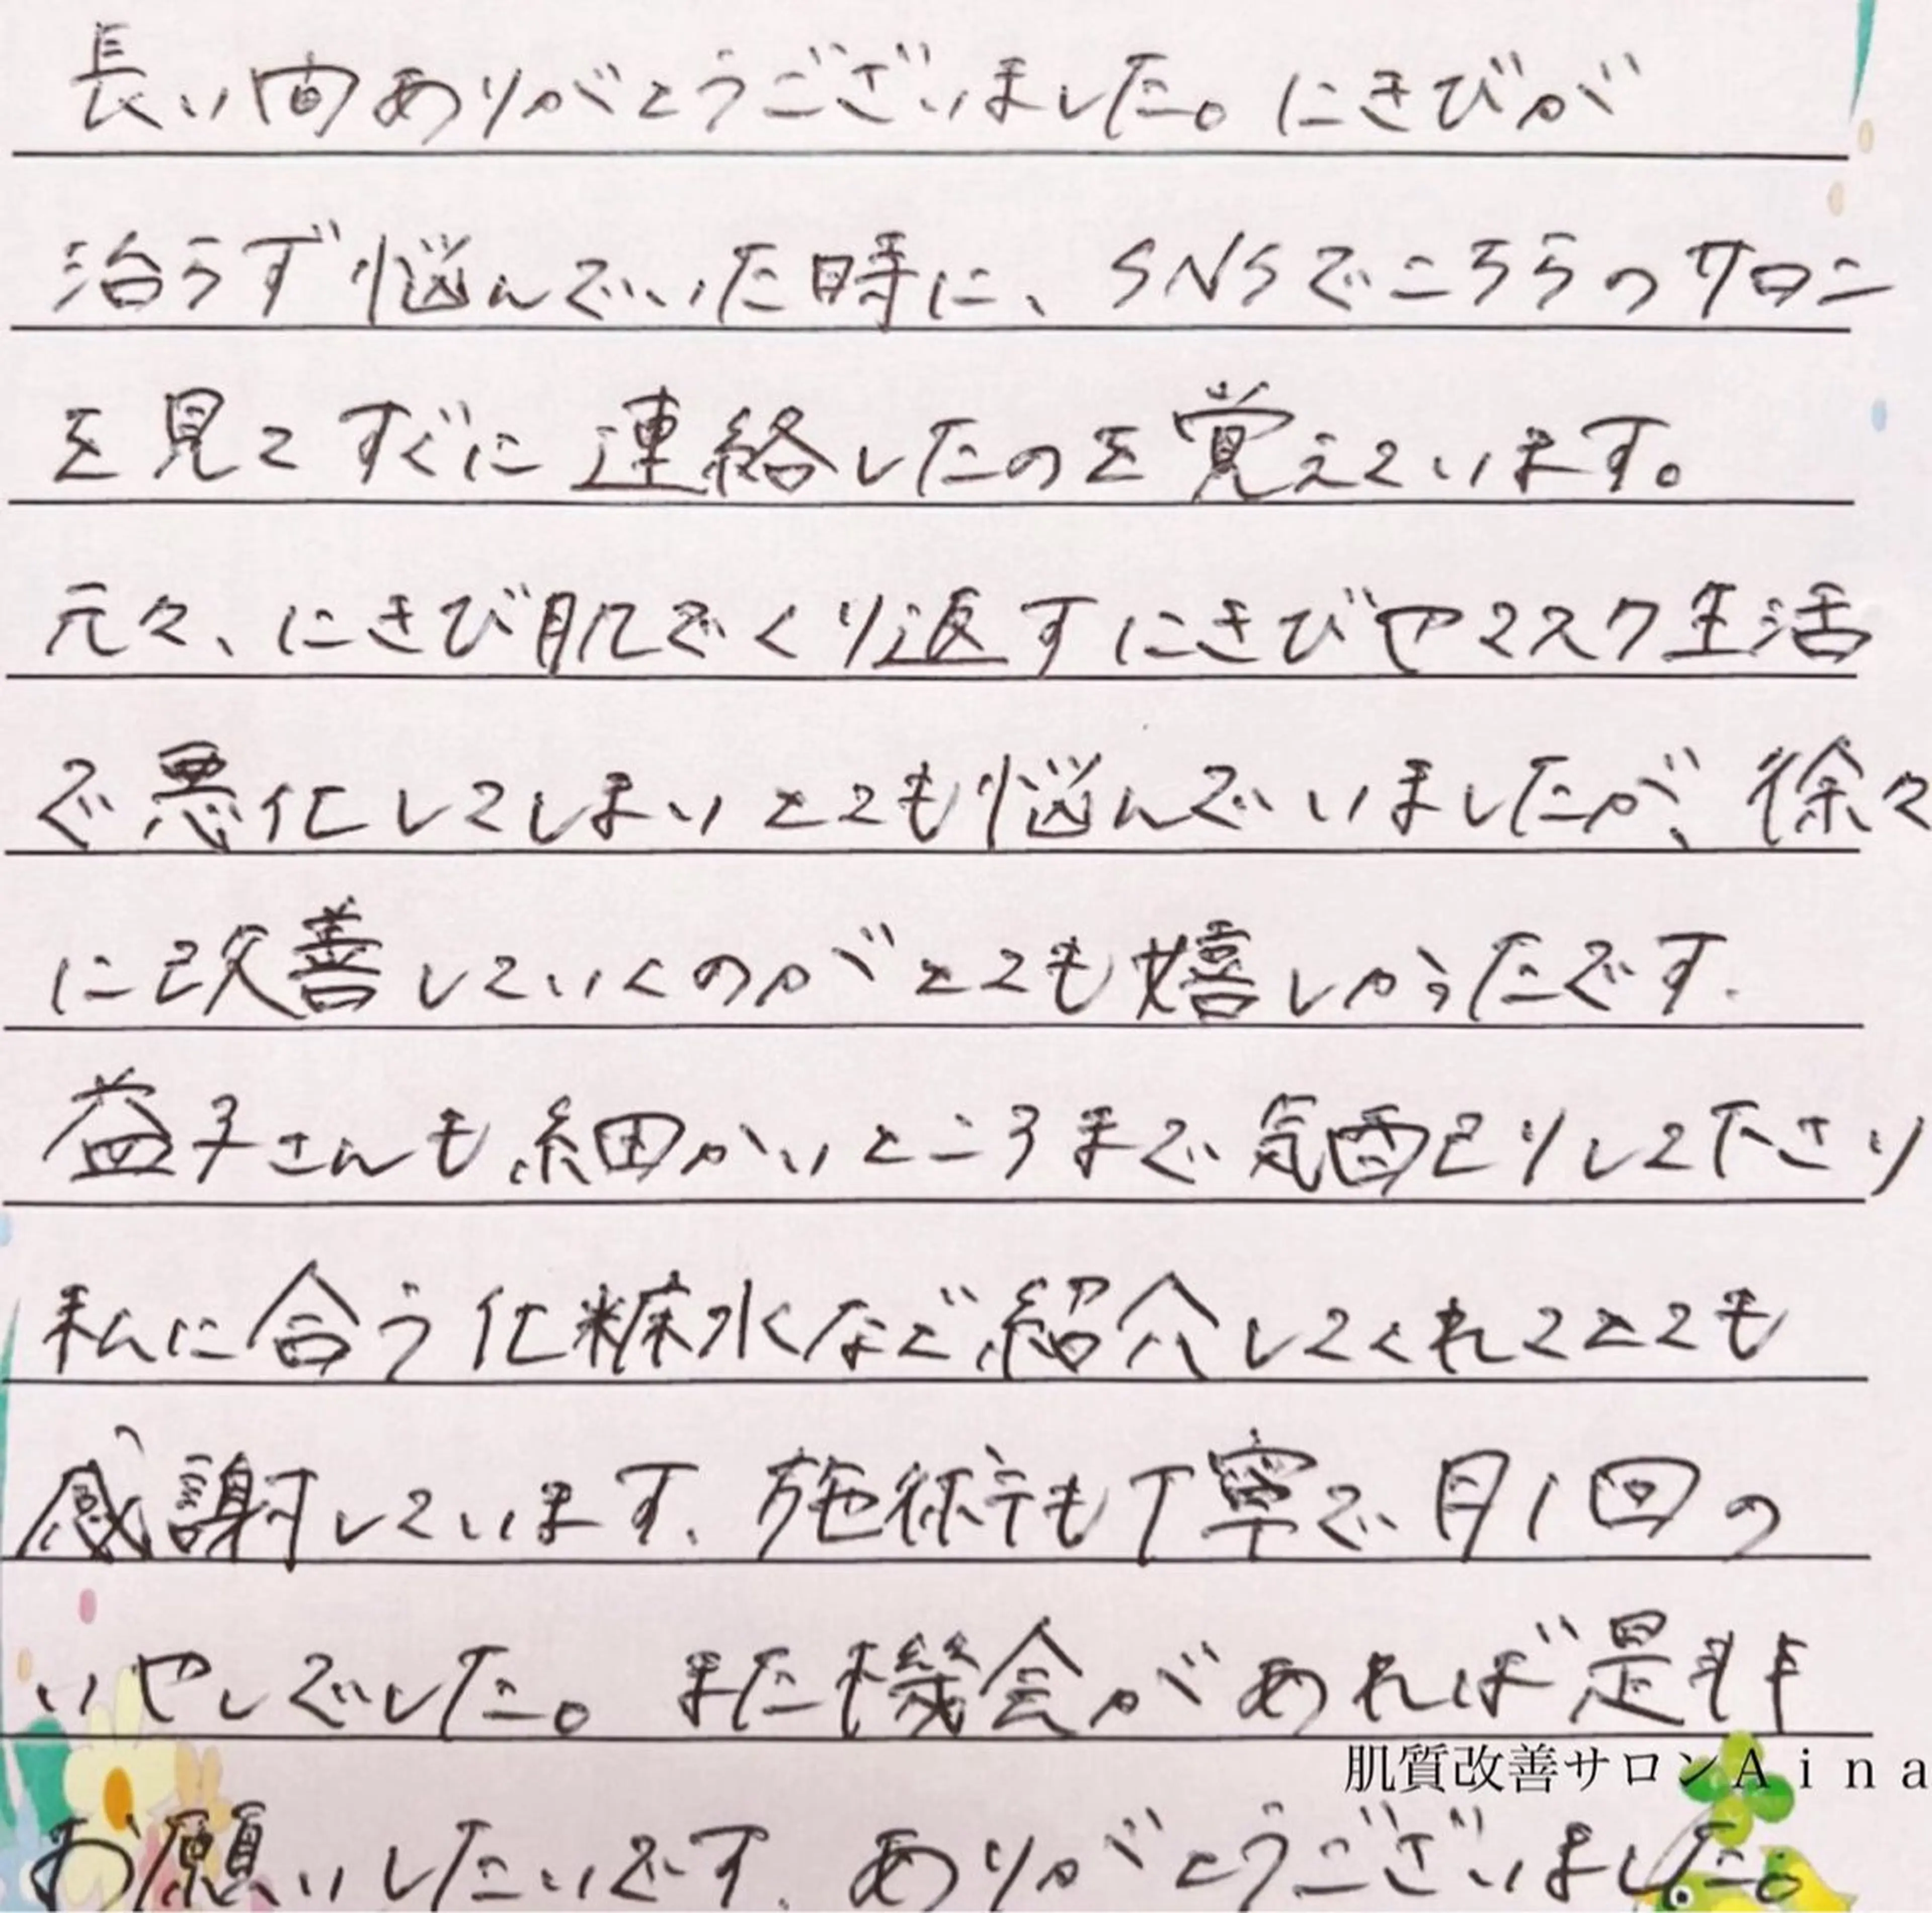 長い間ありがとうございました。にきびが
治らず悩んでいた時に、SNSでこちらのサロン
を見てすぐに連絡したのを覚えています。
元々、にきび肌でくり返すにきびやマスク生活
で悪化してしまいとても悩んでいましたが、徐々
に改善していくのがとても嬉しかったです.
益子さんも細かいところまで気配りして下さり
私に合う化粧水など紹介してくれてとても
感謝しています.施術も丁寧で月1回の
いやしでした。また機会があれば是非
肌質改善サロンAina
お願いしたいです.ありがとうございました。